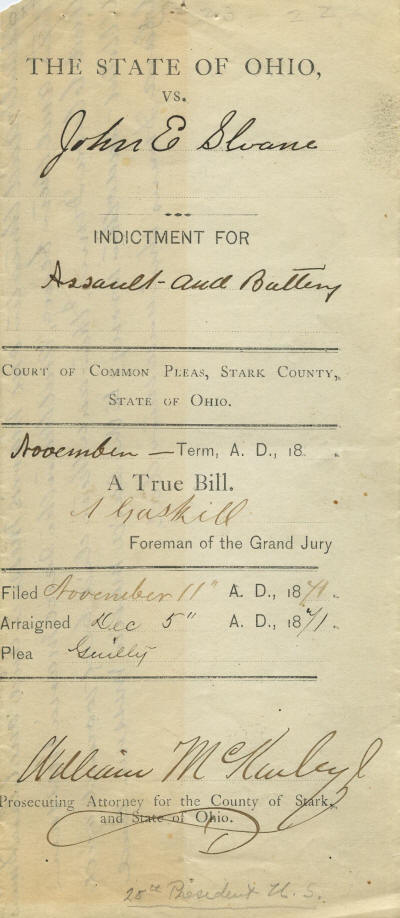 THE STATE OF OHIO,
VS.
John E Sloane
INDICTMENT FOR
Assault and Battery
COURT OF COMMON PLEAS, STARK COUNTY,
STATE OF OHIO.
November — Term, A. D., 18
A TRUE BILL.
Gaskill
Foreman of the Grand Jury
Filed November 11" A. D., 1871
Arraigned Dec 5" A. D., 1871
Plea Guilty
William McKinley Jr
Prosecuting Attorney for the County of Stark,
and State of Ohio.
25th President U.S.